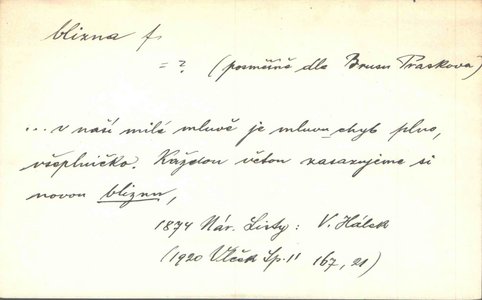 blizna f.
= ? (posměšně dle Brusu Praskova)
... v naší milé mluvě je mluvu chyb plno,
všeplničko. Každou větou zasazujeme si
novou bliznu,
1874 Nár. Listy: V. Hálek
(1920 Vlček Sp. II 167, 21)